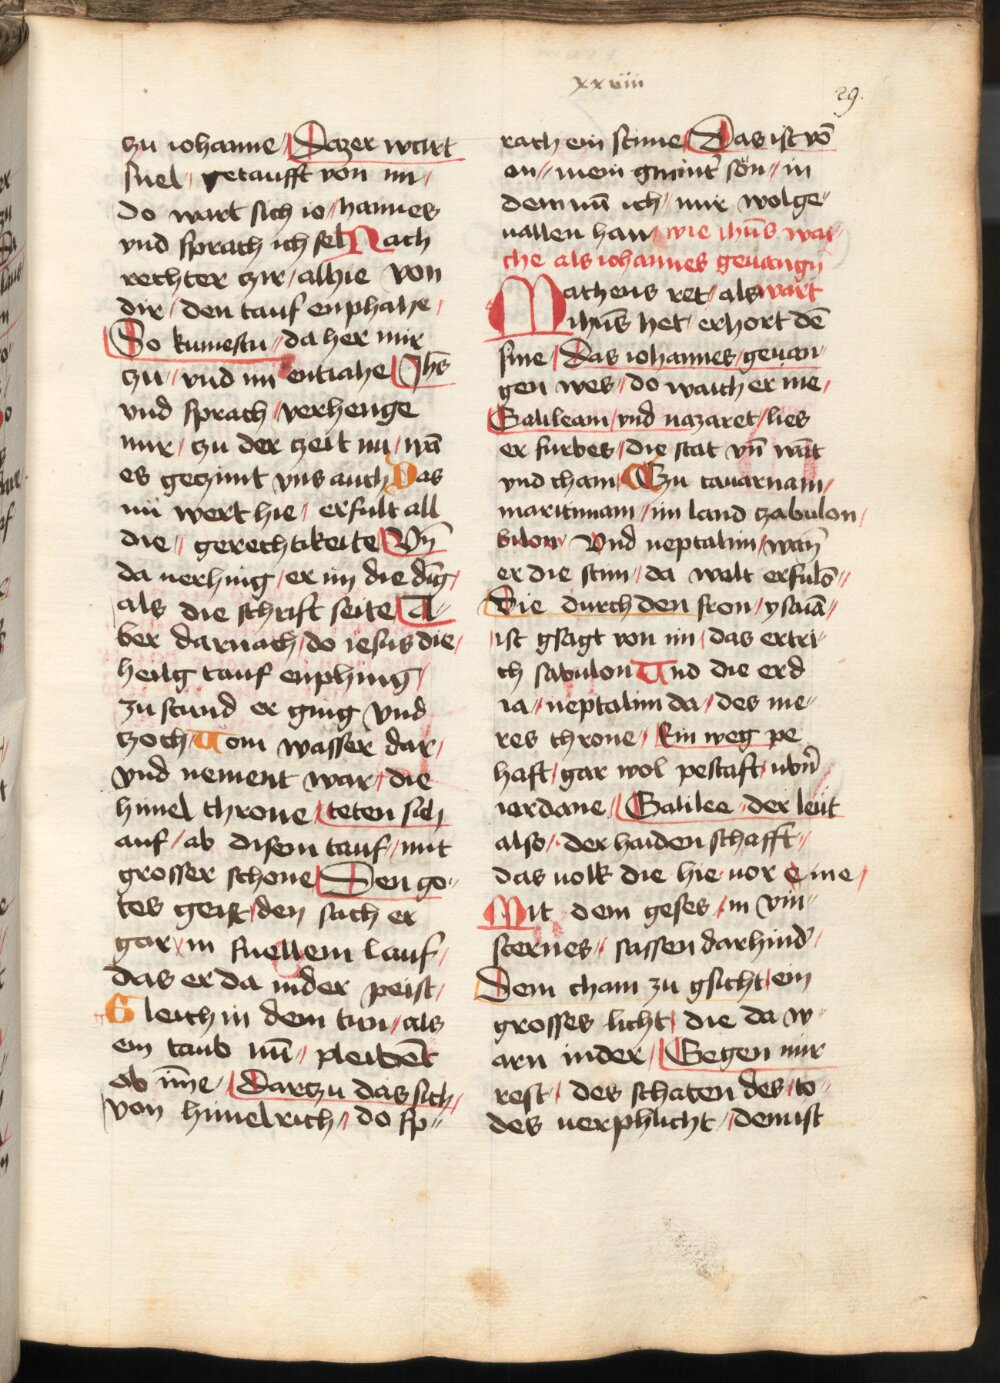 xxviiii
29.
zu iohanne / Dazer wart
snel / getaufft von im /
do wart sich io / hannes
vnd sprach ich sel Nach
rechter zir / alhie von
dir / den tauf enphahe /
So kumestu / da her mir
zu / vnd im entiahe Jhs̄
vnd sprach / verhenge
mir / zu der zeit nu / wā
es geczimt vns auch Das
mi wert hie / erfult all
die / gerechtikeite Vn̄
da uerhing / er im die dīg /
als die schrift seite A-
ber darnach / do iesus die /
heilg tauf enphing /
zu stund er ging vnd
zoch Vom wasser dar /
vnd nement war / die
himel throne / teten sich
auf / ab disem tauf / mit
grosser schone Den go-
tes geist / den sach er
gar in snellem lauf /
das er da inder peist /
Gleich in dem tun / als
ein taub nū / pleibēt
ob īme / Dartzu das sich /
von himelrich / do sp//
rach ein stime Das ist vō
en // mein gmint sön // in
dem nū ich / mir wolge-
uallen han wie ihūs wai-
che als iohannes geuangn̄
Matheus ret / als wart
ihūs het / erhort dē
sine / Das iohannes / geuan-
gen wes / do waich er ine /
Galileam / vnd nazaret / lies
er furbes / die stat vn̄ want
vnd cham / Czu cauarnam /
maritimam / im land zabulon /
bilon Vnd neptalim / wan̄
er die stim / da wolt erfulē //
Die durch den fron / ysaiā /
ist gsagt von im / das ertri-
ch sabulon Vnd die erd
ia // neptalim da / des me-
res throne / kin weg pe
haft / gar wol pestaft / ubn̄
iordane / Galilee der leüt
also / der haiden schafft //
das uolk die hie uor eine /
Mit dem geses / in vin-
sternes // sassen darhind /
Dem cham zu gsicht ein
grosses licht / die da w-
arn inder / Gegen mir
rest / des schaten des / to-
des uerphlicht / dem ist